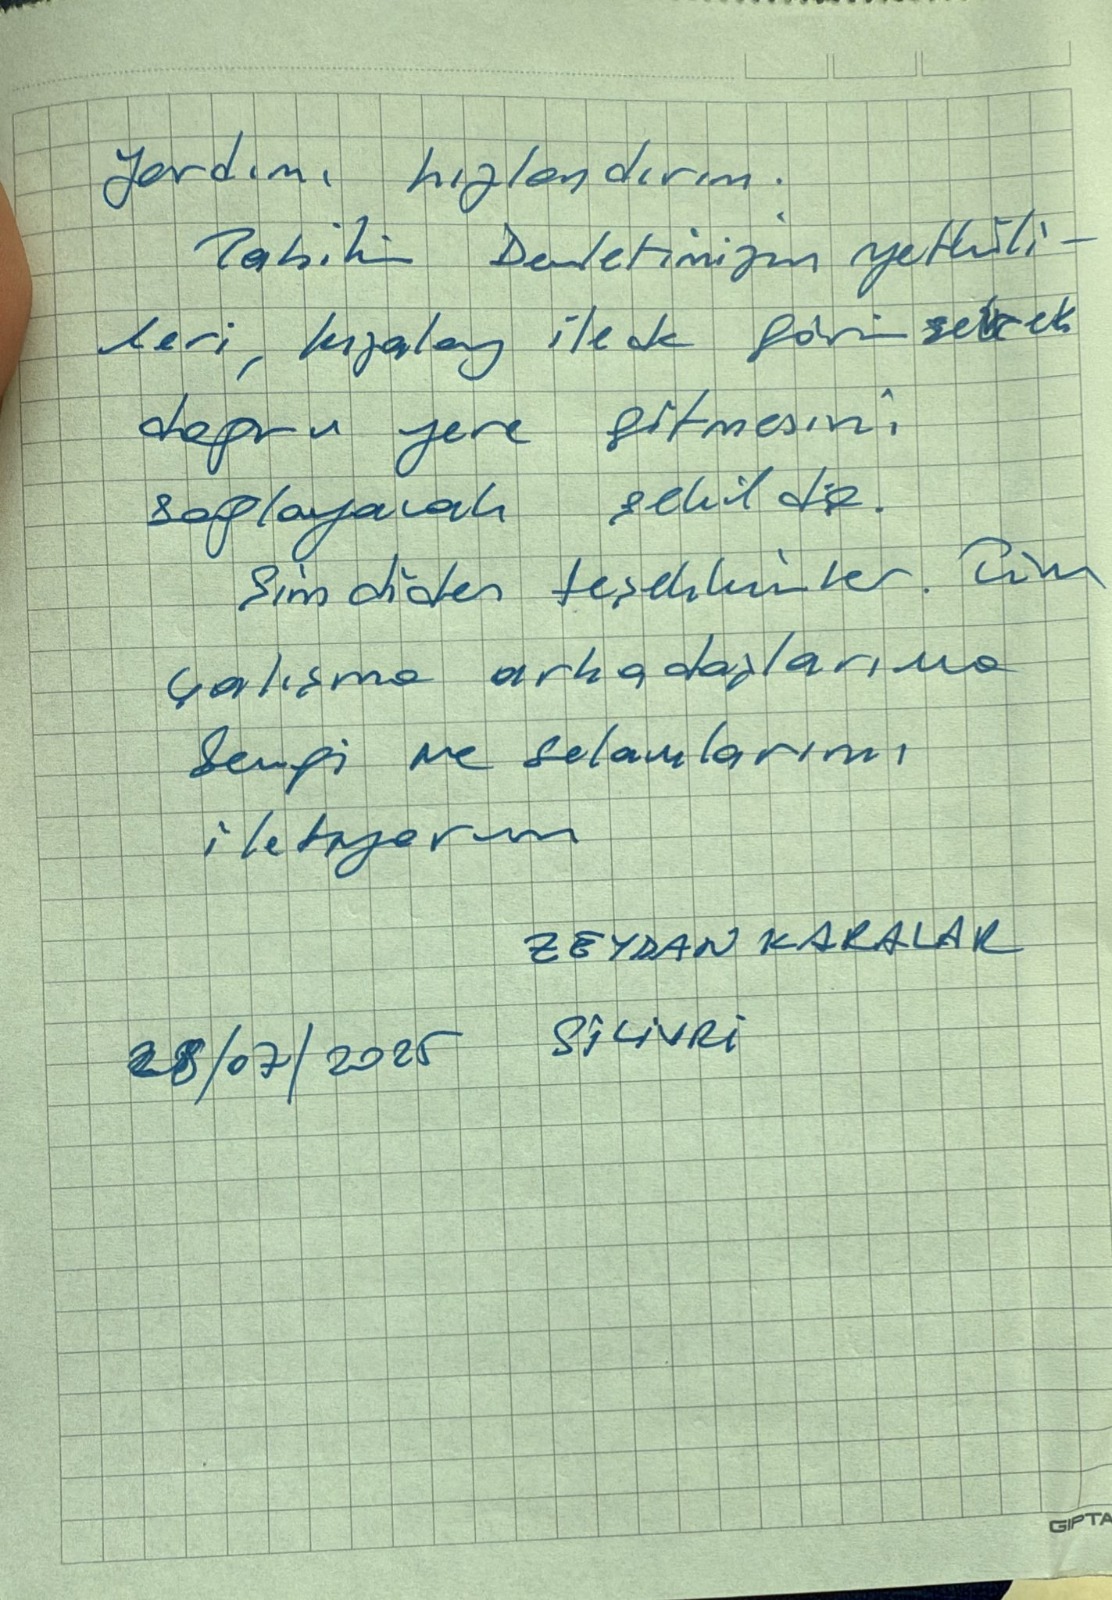 Yardımı hızlandırın.
Tabiki Devletimizin yetkili-
leri, kızılay ile de görüşerek
doğru yere gitmesini
sağlayacak şekilde.
Şimdiden teşekkürler. Tüm
çalışma arkadaşlarıma
Sevgi ve selamlarımı
iletiyorum
ZEYDAN KARALAR
28/07/2025 SİLİVRİ
GIPTA